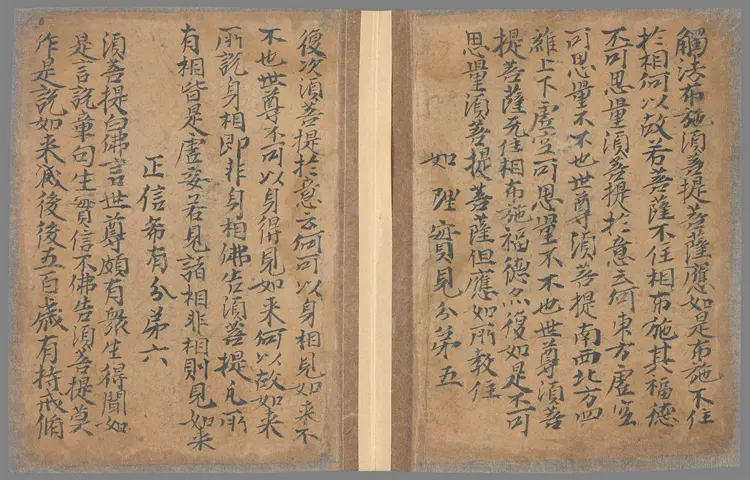 觸法布施須菩提菩薩應如是布施不住
於相何以故若菩薩不住相布施其福德
不可思量須菩提於意云何東方虛空
可思量不不也世尊須菩提南西北方四
維上下虛空可思量不不也世尊須菩
提菩薩无住相布施福德亦復如是不可
思量須菩提菩薩但應如所教住
如理實見分第五
復次須菩提於意云何可以身相見如来不
不也世尊不可以身得見如来何以故如来
所說身相即非身相佛告須菩提凡所
有相皆是虛妄若見諸相非相則見如来
正信希有分第六
須菩提白佛言世尊頗有衆生得聞如
是言說章句生實信不佛告須菩提莫
作是說如来滅後後五百歲有持戒脩